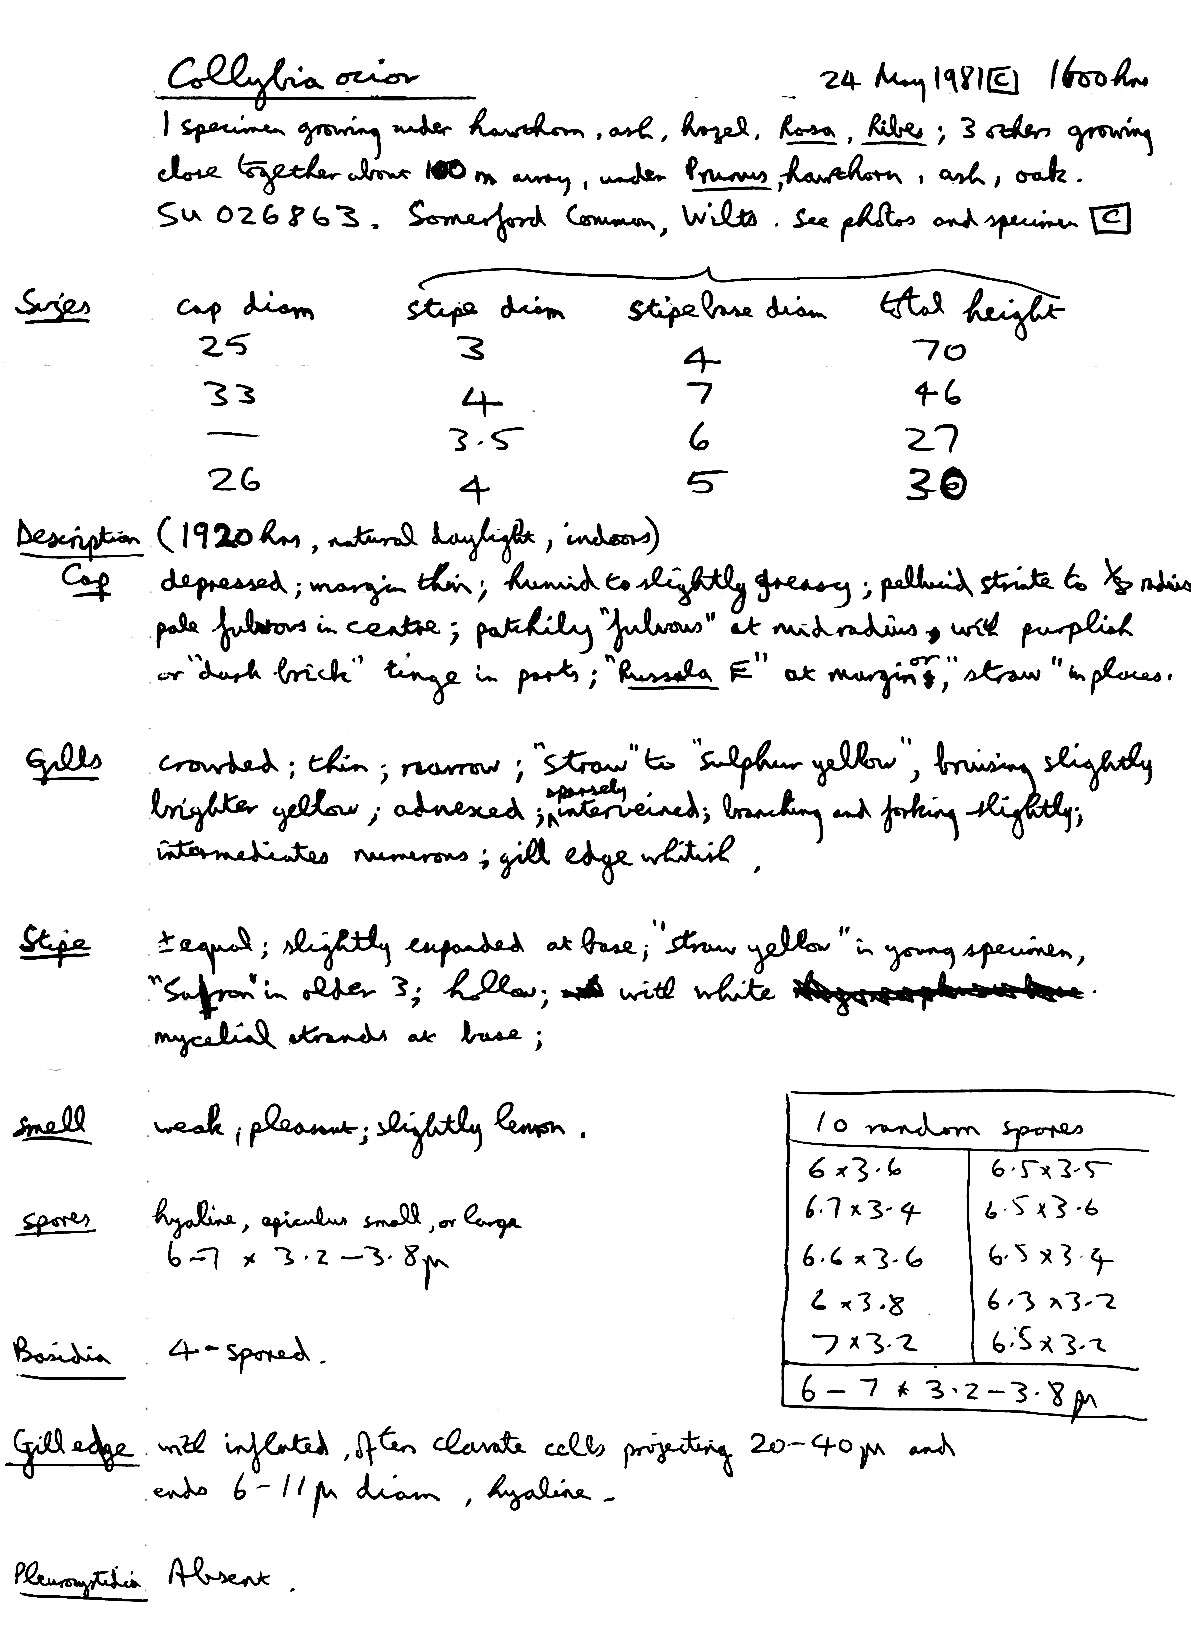 Collybia ocior 24 May 1981 C 1600 hrs
1 specimen growing under hawthorn, ash, hazel, Rosa, Ribes; 3 others growing
close together about 100 m away, under Prunus, hawthorn, ash, oak.
SU 026863. Somerford Common, Wilts. See photos and specimen C
Sizes cap diam stipe diam stipe base diam total height
25 3 4 70
33 4 7 46
— 3.5 6 27
26 4 5 30
Description (1920 hrs, natural daylight, indoors)
Cap depressed; margin thin; humid to slightly greasy; pellucid striate to 1/3 radius
pale fulvous in centre; patchily "fulvous" at mid radius, with purplish
or "dark brick" tinge in parts; "Russula E" at margin or "straw" in places.
Gills crowded; thin; narrow; "straw" to "sulphur yellow", bruising slightly
brighter yellow; adnexed; sparsely interveined; branching and forking slightly;
intermediates numerous; gill edge whitish.
Stipe ± equal; slightly expanded at base; "straw yellow" in young specimen,
"Saffron" in older 3; hollow; with white
mycelial strands at base;
Smell weak, pleasant; slightly lemon.
Spores hyaline, apiculus small, or large
6–7 × 3.2–3.8 µ
10 random spores
6 × 3.6 6.5 × 3.5
6.7 × 3.4 6.5 × 3.6
6.6 × 3.6 6.5 × 3.4
6 × 3.8 6.3 × 3.2
7 × 3.2 6.5 × 3.2
6–7 × 3.2–3.8 µ
Basidia 4-spored.
Gill edge with inflated, often clavate cells projecting 20–40 µ and
ends 6–11 µ diam, hyaline.
Pleurocystidia Absent.